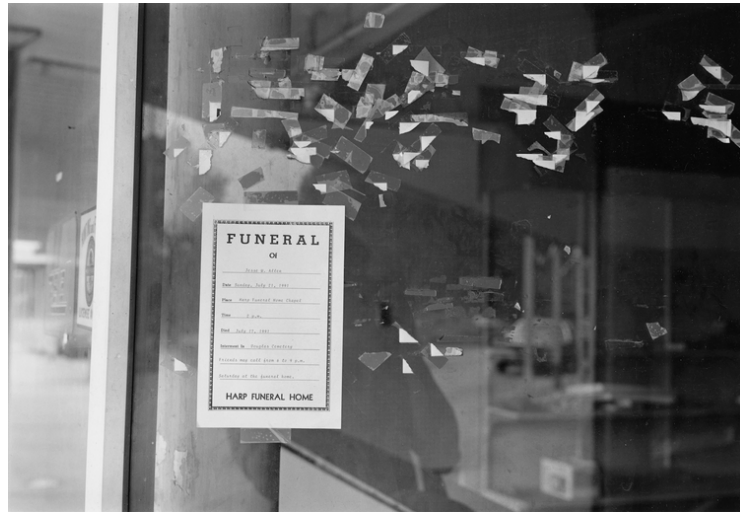 FUNERAL
Of
Date Sunday, July 27, 1997
Place Harp Funeral Home Chapel
Time 2 p.m.
Died July 25, 1997
Interment In Cemetery
Friends may call from 4 to 8 p.m.
Saturday at the funeral home.
HARP FUNERAL HOME